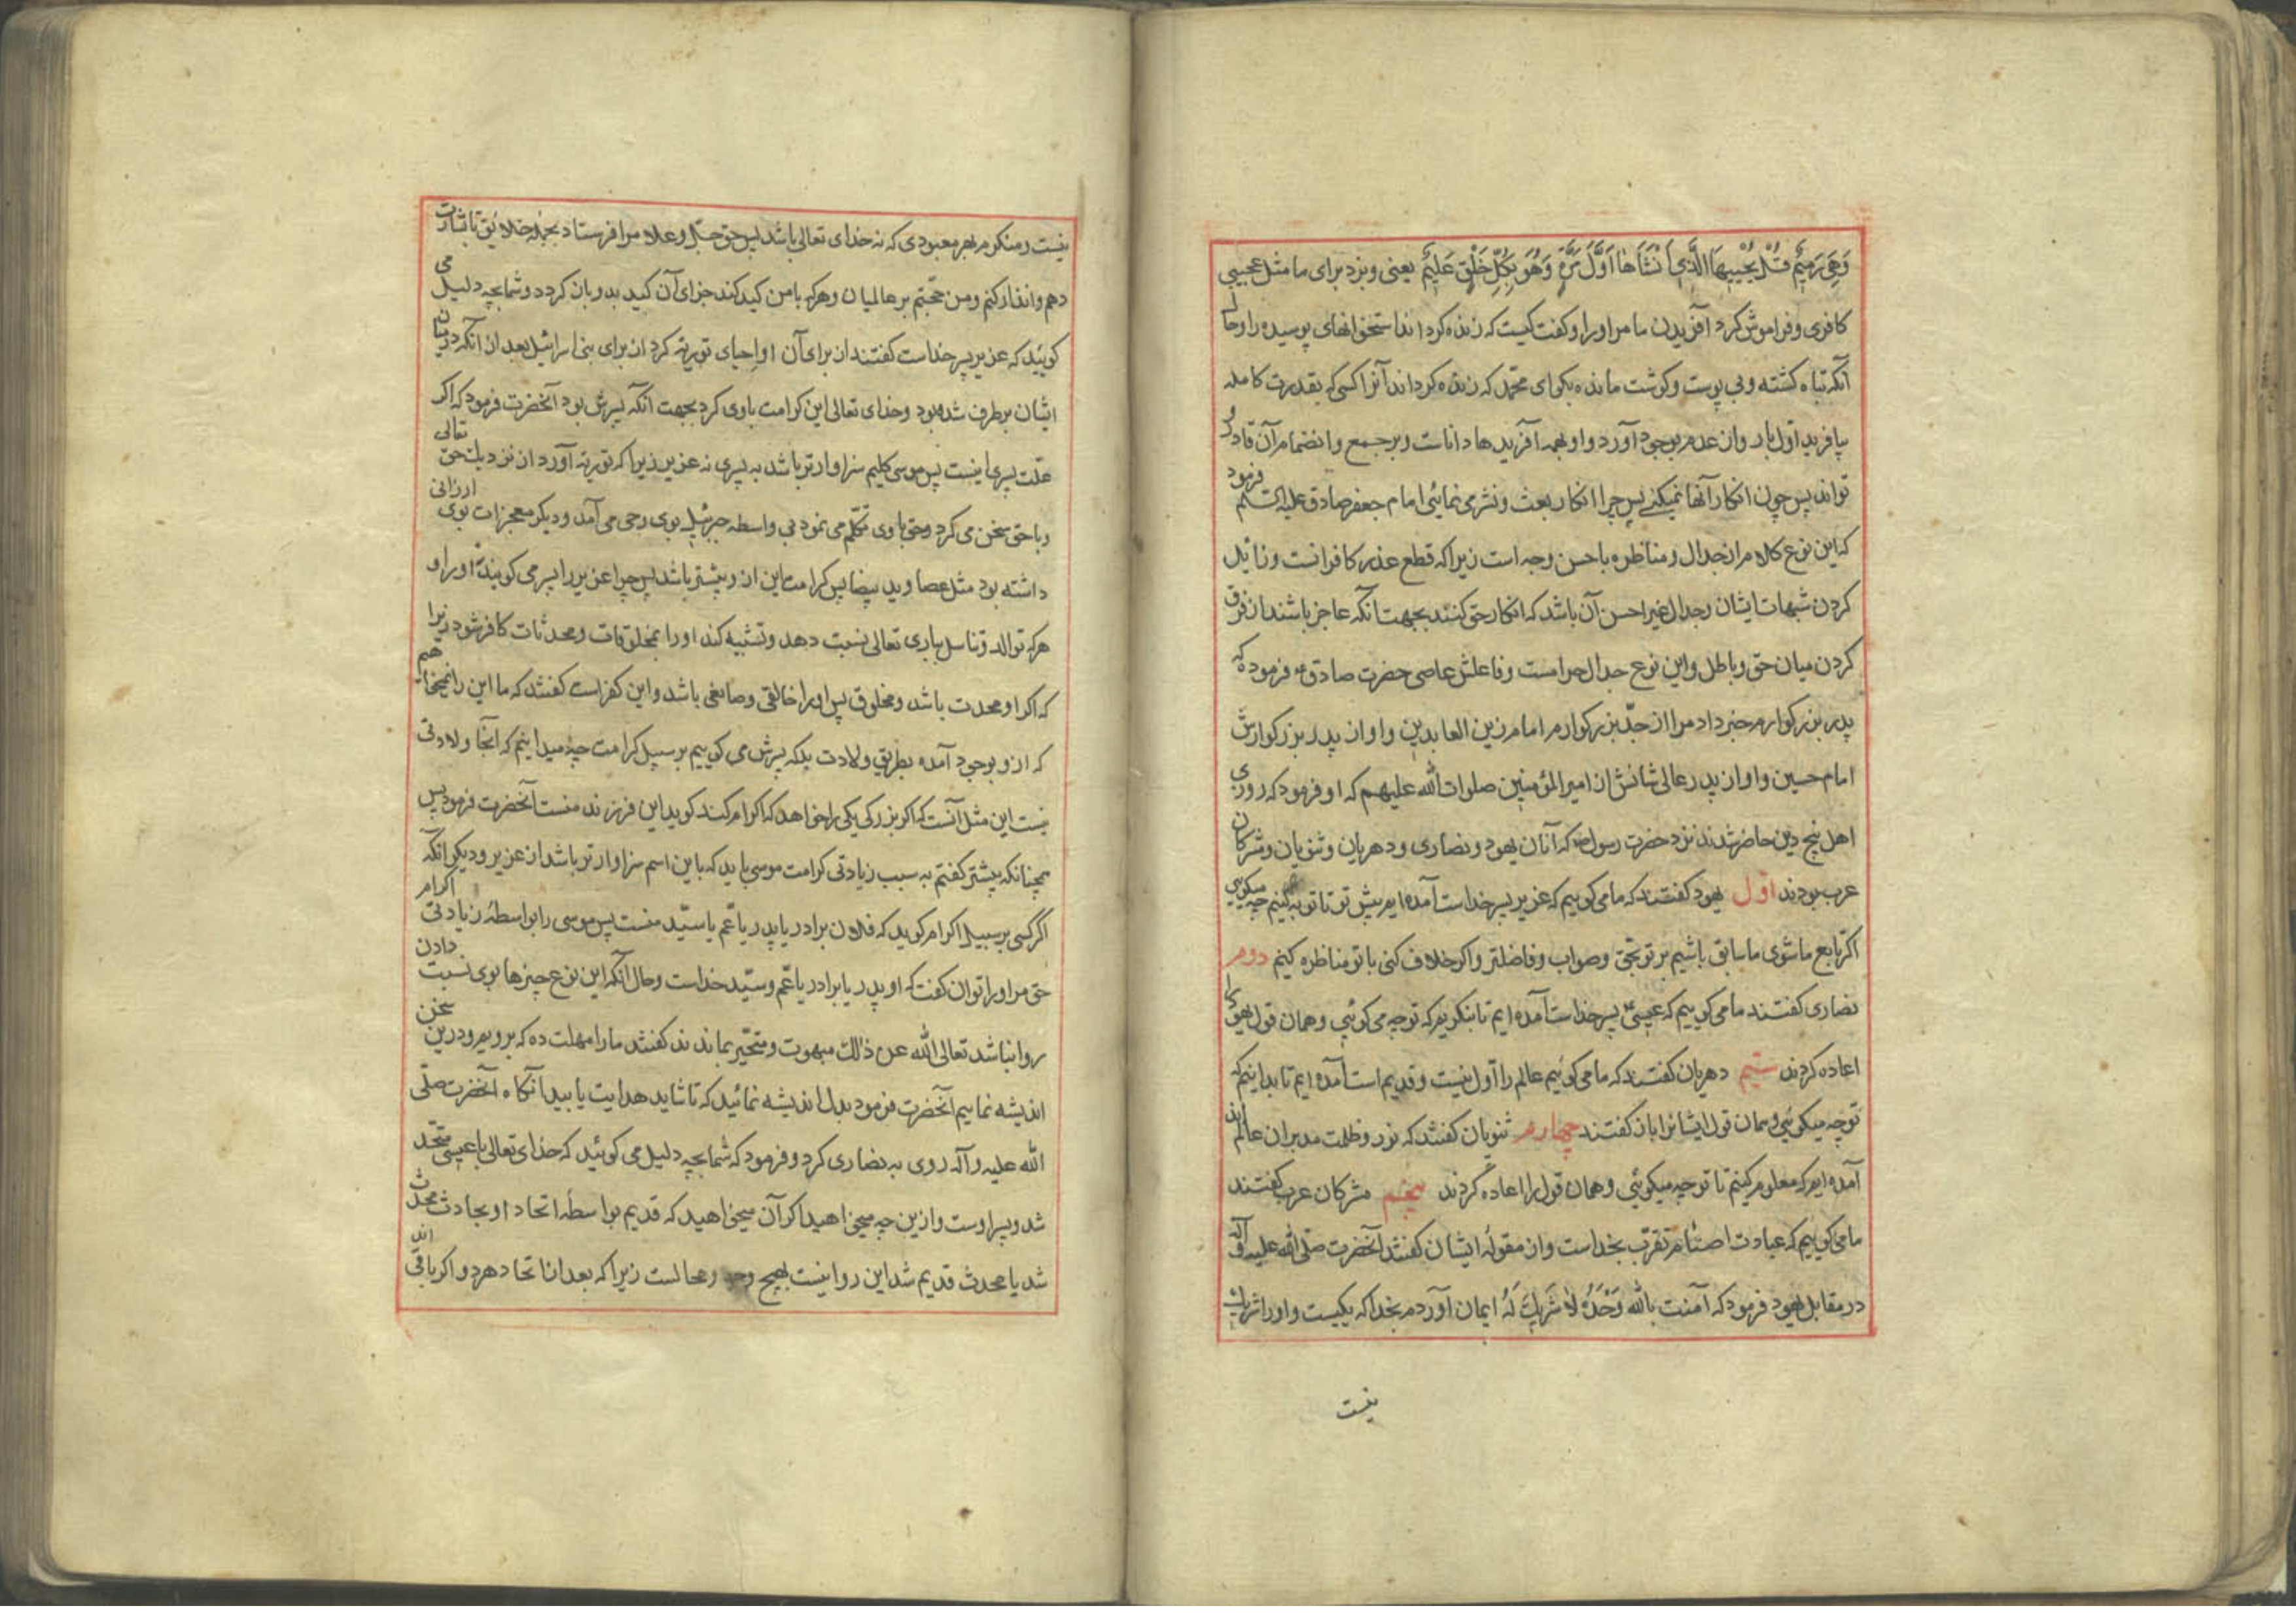 وَهِیَ رَمِیمٌ قُلْ یُحْیِیهَا الَّذِی أَنْشَأَهَا أَوَّلَ مَرَّةٍ وَهُوَ بِکُلِّ خَلْقٍ عَلِیمٌ یعنی و بزد برای ما مثل عجیبی
کافری و فراموش کرد آفریدن ما مر او را و کفت کیست که زنده کرداند استخوانهای پوسیده را و حال
آنکه تباه کشته و بی پوست و کوشت مانده بکو ای محمّد که زنده کرداند آنرا کسی که بقدرت کامله
بیافرید اول بار و از عدم بوجود آورد و او بهمه آفریدها داناست و بر جمع و انضمام آن قادر و
تواند پس چون انکار آنها نمیکنی پس چرا انکار بعث و نشر می نمائی امام جعفر صادق علیه السلم فرمود
که این نوع کلام از جدال و مناظره باحسن وجه است زیرا که قطع عذر کافرانست و زائل
کردن شبهات ایشان و جدال غیر احسن آن باشد که انکار حق کنند بجهت آنکه عاجز باشند از فرق
کردن میان حق و باطل و این نوع جدال حرامست و فاعلش عاصی حضرت صادق ع فرموده که
پدر بزرکوارم خبر داد مرا از جدّ بزرکوارم امام زین العابدین و او از پدر بزرکوارش
امام حسین و او از پدر عالی شانش از امیر المؤمنین صلوات الله علیهم که او فرمود که روزی
اهل پنج دین حاضر شدند نزد حضرت رسول ص که آنان یهود و نصاری و دهریان و ثنویان و مشرکان
عرب بودند اول یهود کفتند که ما می کوییم که عزیر پسر خداست آمده ایم پیش تو تا تو به بینیم چه میکویی
اکر تابع ما شوی ما سابق باشیم بر تو بحق و صواب و فاضلتر و اکر خلاف کنی با تو مناظره کنیم دوم
نصاری کفتند ما می کوییم که عیسی پسر خداست آمده ایم تا بنکریم که تو چه می کوئی و همان قول یهود را
اعاده کردند سیم دهریان کفتند که ما می کوئیم عالم را اول نیست و قدیم است آمده ایم تا بدانیم که
تو چه میکوئی و همان قول ایشانرا باز کفتند چهارم ثنویان کفتند که نور و ظلمت مدبران عالم اند
آمده ایم که معلوم کنیم تا تو چه میکوئی و همان قول را اعاده کردند پنجم مشرکان عرب کفتند
ما می کوییم که عبادت اصنام تقرّب بخداست و از مقوله ایشان کفتند آنحضرت صلّی الله علیه و آله
در مقابل یهود فرمود که آمنت بالله وَحْدَهُ لا شَرِیكَ لَهُ ایمان آوردم بخدا که یکیست و او را شریك
نیست
نیست و منکرم بهر معبودی که نه خدای تعالی باشد پس حق جلّ و علا مرا فرستاد بجمله خلایق تا بشارت
دهم و انذار کنم و من حجّتم بر عالمیان و هر که با من کید کند جزای آن کید بدو باز کردد و شما بچه دلیل می
کویید که عزیر پسر خداست کفتند از برای آن او احیای توریة کرد از برای بنی اسرائیل بعد از آنکه در میان
ایشان بر طرف شده بود و خدای تعالی این کرامت باوی کرد بجهت آنکه پسرش بود آنحضرت فرمود که اکر
علّت پسری اینست پس موسی کلیم سزاوارتر باشد به پسری نه عزیر زیرا که توریة آورد از نزدیك حق تعالی
و با حق سخن می کرد و حق با وی تکلّم می نمود بی واسطه جبرئیل بوی وحی می آمد و دیکر معجزات بوی ارزانی
داشته بود مثل عصا و ید بیضا پس کرامت این از و بیشتر باشد پس چرا عزیر را پسر می کویند او را و
هر که توالد و تناسل بباری تعالی نسبت دهد و تشبیه کند او را بمخلوقات و محدثات کافر شود زیرا
که اکر او محدث باشد و مخلوق پس او را خالقی و صانعی باشد و این کفر است کفتند که ما این را نمیخواهیم
که از و بوجود آمده بطریق ولادت بلکه پسرش می کوییم بر سبیل کرامت چه میدانیم که آنجا ولادتی
نیست این مثل آنست که اکر بزرکی یکی را خواهد که اکرام کند کوید این فرزند منست آنحضرت فرمود پس
همچنانکه پیشتر کفتم به سبب زیادتی کرامت موسی باید که باین اسم سزاوارتر باشد از عزیر و دیکر آنکه
اکر کسی بر سبیل اکرام کوید که فلان برادر یا پدر یا عّم یا سیّد منست پس موسی را بواسطۀ زیادتی اکرام
حق مر او را توان کفت که او پدر یا برادر یا عّم و سیّد خداست و حال آنکه این نوع چیزها بوی نسبت دادن
روا نباشد تعالی الله عن ذلك مبهوت و متحیّر بماندند کفتند ما را مهلت ده که برویم و درین سخن
اندیشه نماییم آنحضرت فرمود بدل اندیشه نمائید که تا شاید هدایت یابید آنکاه آنحضرت صلّی
الله علیه و آله روی به نصاری کرد و فرمود که شما بچه دلیل می کوئید که خدای تعالی با عیسی متّحد
شد و پسر اوست و ازین چه میخواهید اکر آن میخواهید که قدیم بواسطۀ اتحاد او بحادث محدث
شد یا محدث قدیم شد این روا نیست بهیچ وجه و محالست زیرا که بعد از اتحاد هر دو اکر باقی اند